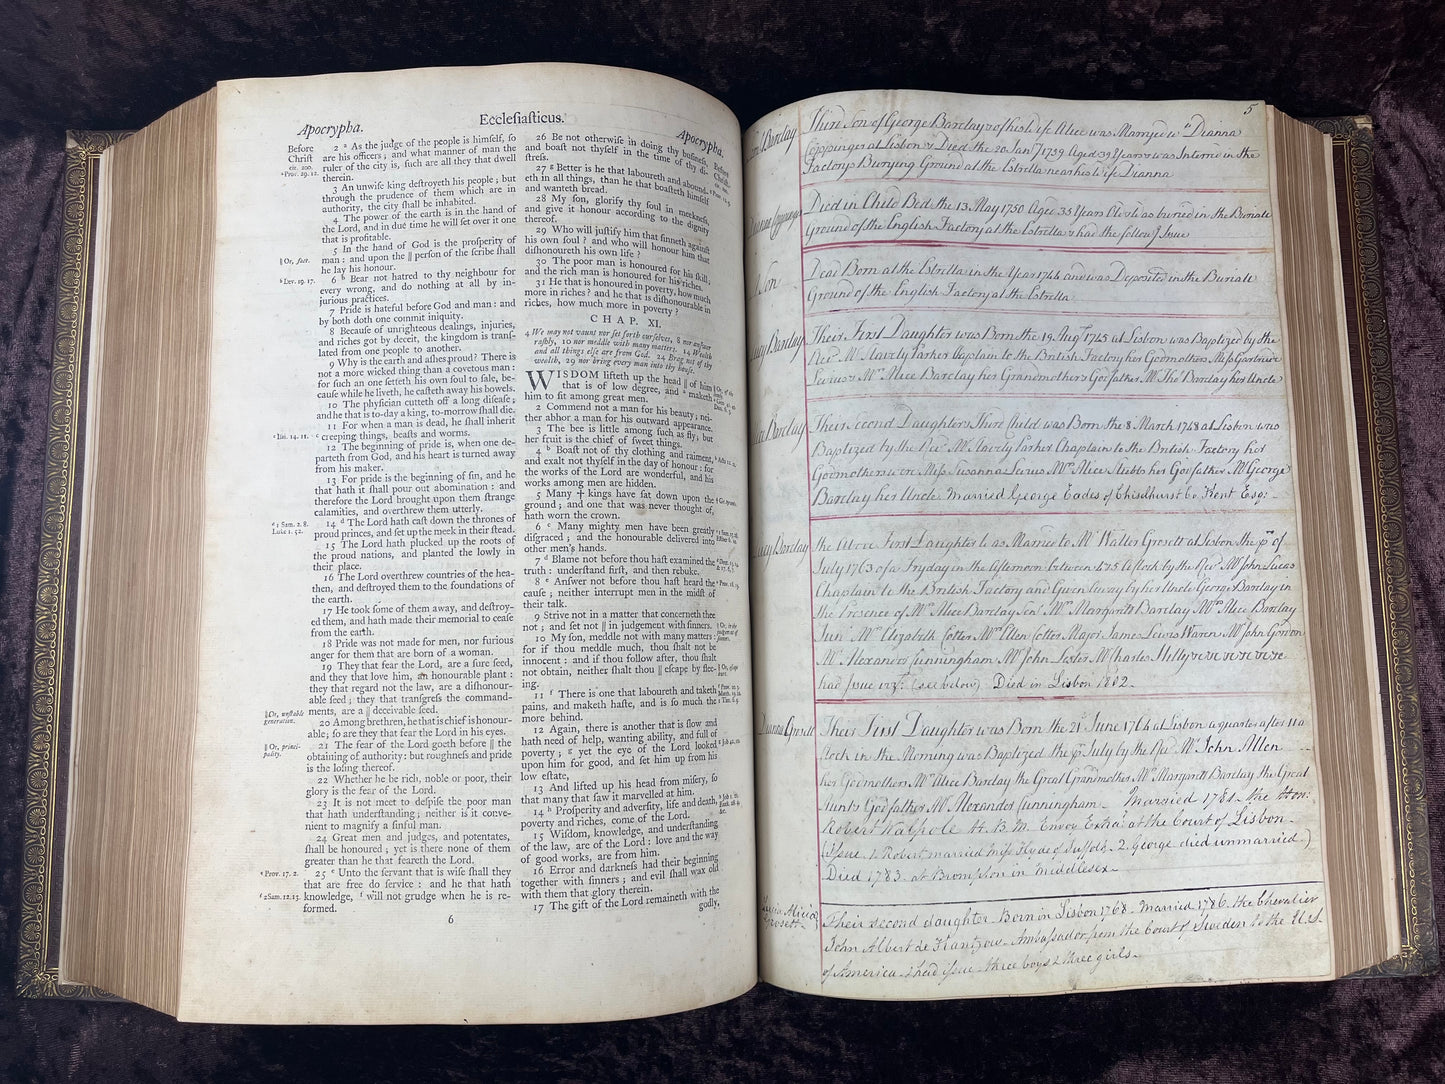 Apocrypha.
Ecclesiasticus.
Apocrypha.
Before
Christ
cir. 200.
ᵃ Prov. 29. 12.
2 ᵃ As the judge of the people is himself, so
are his officers ; and what manner of man the
ruler of the city is, such are all they that dwell
therein.
3 An unwise king destroyeth his people ; but
through the prudence of them which are in
authority, the city shall be inhabited.
4 The power of the earth is in the hand of
the Lord, and in due time he will set over it one
that is profitable.
5 In the hand of God is the prosperity of
‖ Or, face.
man : and upon the ‖ person of the scribe shall
he lay his honour.
ᵇ Lev. 19. 17.
6 ᵇ Bear not hatred to thy neighbour for
every wrong, and do nothing at all by in-
jurious practices.
7 Pride is hateful before God and man : and
by both doth one commit iniquity.
8 Because of unrighteous dealings, injuries,
and riches got by deceit, the kingdom is trans-
lated from one people to another.
9 Why is the earth and ashes proud? There is
not a more wicked thing than a covetous man :
for such an one setteth his own soul to sale, be-
cause while he liveth, he casteth away his bowels.
10 The physician cutteth off a long disease ;
and he that is to-day a king, to-morrow shall die.
11 For when a man is dead, he shall inherit
ᶜ Isai. 14. 11.
ᶜ creeping things, beasts and worms.
12 The beginning of pride is, when one de-
parteth from God, and his heart is turned away
from his maker.
13 For pride is the beginning of sin, and he
that hath it shall pour out abomination : and
therefore the Lord brought upon them strange
calamities, and overthrew them utterly.
ᵈ 1 Sam. 2. 8.
Luke 1. 52.
14 ᵈ The Lord hath cast down the thrones of
proud princes, and set up the meek in their stead.
15 The Lord hath plucked up the roots of
the proud nations, and planted the lowly in
their place.
16 The Lord overthrew countries of the hea-
then, and destroyed them to the foundations of
the earth.
17 He took some of them away, and destroy-
ed them, and hath made their memorial to cease
from the earth.
18 Pride was not made for men, nor furious
anger for them that are born of a woman.
19 They that fear the Lord, are a sure seed,
and they that love him, an honourable plant :
they that regard not the law, are a dishonour-
able seed ; they that transgress the command-
‖ Or, unstable
generation.
ments, are a ‖ deceivable seed.
20 Among brethren, he that is chief is honour-
able; so are they that fear the Lord in his eyes.
‖ Or, princi-
pality.
21 The fear of the Lord goeth before ‖ the
obtaining of authority: but roughness and pride
is the losing thereof.
22 Whether he be rich, noble or poor, their
glory is the fear of the Lord.
23 It is not meet to despise the poor man
that hath understanding; neither is it conve-
nient to magnify a sinful man.
24 Great men and judges, and potentates,
shall be honoured ; yet is there none of them
greater than he that feareth the Lord.
ᵉ Prov. 17. 2.
25 ᵉ Unto the servant that is wise shall they
that are free do service : and he that hath
ᶠ 2 Sam. 12. 13.
knowledge, ᶠ will not grudge when he is re-
formed.
6
26 Be not otherwise in doing thy business,
and boast not thyself in the time of thy di-
stress.
27 ᵍ Better is he that laboureth and abound-
eth in all things, than he that boasteth himself
and wanteth bread.
28 My son, glorify thy soul in meekness,
and give it honour according to the dignity
thereof.
29 Who will justify him that sinneth against
his own soul ? and who will honour him that
dishonoureth his own life ?
30 The poor man is honoured for his skill,
and the rich man is honoured for his riches.
31 He that is honoured in poverty, how much
more in riches ? and he that is dishonourable in
riches, how much more in poverty ?
CHAP. XI.
4 We may not vaunt nor set forth ourselves, 8 nor answer
rashly, 10 nor meddle with many matters. 14 Wealth
and all things else are from God. 24 Brag not of thy
wealth, 29 nor bring every man into thy house.
WISDOM lifteth up the head ‖ of him
that is of low degree, and ᵃ maketh
him to sit among great men.
2 Commend not a man for his beauty ; nei-
ther abhor a man for his outward appearance.
3 The bee is little among such as fly ; but
her fruit is the chief of sweet things.
4 ᵇ Boast not of thy clothing and raiment,
and exalt not thyself in the day of honour : for
the works of the Lord are wonderful, and his
works among men are hidden.
5 Many † kings have sat down upon the
ground ; and one that was never thought of,
hath worn the crown.
6 ᶜ Many mighty men have been greatly
disgraced ; and the honourable delivered into
other men's hands.
7 ᵈ Blame not before thou hast examined the
truth : understand first, and then rebuke.
8 ᵉ Answer not before thou hast heard the
cause ; neither interrupt men in the midst of
their talk.
9 Strive not in a matter that concerneth thee
not ; and sit not ‖ in judgement with sinners.
10 My son, meddle not with many matters :
for if thou meddle much, thou shalt not be
innocent : and if thou follow after, thou shalt
not obtain, neither shalt thou ‖ escape by flee-
ing.
11 ᶠ There is one that laboureth and taketh
pains, and maketh haste, and is so much the
more behind.
12 Again, there is another that is slow and
hath need of help, wanting ability, and full of
poverty ; ᵍ yet the eye of the Lord looked
upon him for good, and set him up from his
low estate,
13 And lifted up his head from misery, so
that many that saw it marvelled at him.
14 ʰ Prosperity and adversity, life and death,
poverty and riches, come of the Lord.
15 Wisdom, knowledge, and understanding
of the law, are of the Lord : love and the way
of good works, are from him.
16 Error and darkness had their beginning
together with sinners ; and evil shall wax old
with them that glory therein.
17 The gift of the Lord remaineth with the
godly,
5
Barclay
Third Son of George Barclay & of his Wife Alice was Marryed to Dianna
Coppinger at Lisbon & Died the 20 Janry 1759 Aged 39 Years & was Interred in the
Factorys Burying Ground at the Estrella near his Wife Dianna
Died in Child Bed the 13 May 1750 Aged 33 Years Old & was buried in the Buriale
Ground of the English Factory at the Estrella & had the follow.g Issue
Son
Dead Born at the Estrella in the Year 1744 and was Deposited in the Buriale
Ground of the English Factory at the Estrella
Lucy Barclay
Their First Daughter was Born the 19 Augt 1745 at Lisbon was Baptized by the
Revd Mr Stavely Parker Chaplain to the British Factory her Godmothers Miss Gertrude
Lewis & Mrs Alice Barclay her Grandmother & Godfather Mr Thos Barclay her Uncle
Barclay
Their second Daughter & Third Child was Born the 8 March 1748 at Lisbon was
Baptized by the Revd Mr Stavely Parker Chaplain to the British Factory her
Godmothers were Miss Susanna Lewis & Mrs Alice Stubbs her Godfather Mr George
Barclay her Uncle. Married George Eades of Chislhurst Co. Kent Esq:
Lucy Barclay
The above First Daughter was Married to Mr Walter Grosett at Lisbon the
July 1763 of a Fryday in the Afternoon between 4 & 5 aClock by the Revd Mr John Lucas
Chaplain to the British Factory and Given away by her Uncle George Barclay in
the Presence of Mrs Alice Barclay Senr Mrs Margarett Barclay Mrs Alice Barclay
Junr Mrs Elizabeth Cotter Mrs Ellen Cotter Major James Lewis Waren Mr John Gordon
Mr Alexander Cunningham Mr John Lester Mr Charles Hilly &c &c &c &c &c
had Issue vizt. (see below) Died in Lisbon 1802.
Dianna Grosett
Their First Daughter was Born the 21st June 1764 at Lisbon a quarter after 11 a
Clock in the Morning was Baptized the July by the Revd Mr John Allen
her Godmothers Mrs Alice Barclay the Great Grandmother Mrs Margarett Barclay the Great
Aunt & Godfather Mr Alexander Cunningham. Married 1781 the Hon:
Robert Walpole H. B. M. Envoy Extra.y at the Court of Lisbon.
(issue 1. Robert married Miss Hyde of Suffolk. 2. George died unmarried)
Died 1783. at Brompton in Middlesex
Grosett
Their second daughter Born in Lisbon 1768. Married 1786. the Chevalier
John Albert de Kantzow. Ambassador from the Court of Sweden to the U.S.
of America & had issue three boys & three girls